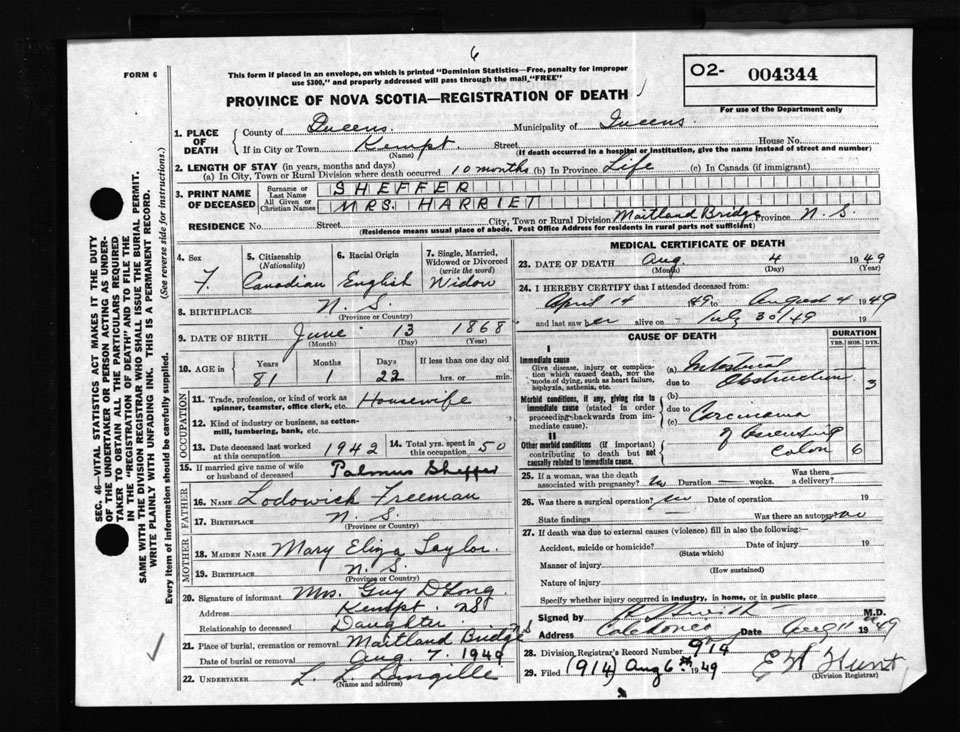 6
FORM 6
This form if placed in an envelope, on which is printed "Dominion Statistics—Free, penalty for improper
use $300," and properly addressed will pass through the mail "FREE"
O2- 004344
For use of the Department only
PROVINCE OF NOVA SCOTIA—REGISTRATION OF DEATH
1. PLACE OF DEATH { County of Queens Municipality of Queens
If in City or Town Kempt Street House No.
(Name) (If death occurred in a hospital or institution, give the name instead of street and number)
2. LENGTH OF STAY (in years, months and days)
(a) In City, Town or Rural Division where death occurred 10 months (b) In Province Life (c) In Canada (if immigrant)
3. PRINT NAME OF DECEASED { Surname or Last Name SHEFFER
All Given or Christian Names MRS. HARRIET
RESIDENCE No. Street City, Town or Rural Division Maitland Bridge Province N.S.
(Residence means usual place of abode. Post Office Address for residents in rural parts not sufficient)
SEC. 46—VITAL STATISTICS ACT MAKES IT THE DUTY
OF THE UNDERTAKER OR PERSON ACTING AS UNDER-
TAKER TO OBTAIN ALL THE PARTICULARS REQUIRED
IN THE "REGISTRATION OF DEATH" AND TO FILE THE
SAME WITH THE DIVISION REGISTRAR WHO SHALL ISSUE THE BURIAL PERMIT.
WRITE PLAINLY WITH UNFADING INK. THIS IS A PERMANENT RECORD.
Every item of information should be carefully supplied. (See reverse side for instructions.)
4. Sex 5. Citizenship (Nationality) 6. Racial Origin 7. Single, Married, Widowed or Divorced (write the word)
F. Canadian English Widow
8. BIRTHPLACE N.S.
(Province or Country)
9. DATE OF BIRTH June 13 1868
(Month) (Day) (Year)
10. AGE IN { Years Months Days If less than one day old
81 1 22 hrs. or min.
OCCUPATION
11. Trade, profession, or kind of work as spinner, teamster, office clerk, etc. Housewife
12. Kind of industry or business, as cotton-mill, lumbering, bank, etc.
13. Date deceased last worked at this occupation 1942 14. Total yrs. spent in this occupation 50
15. If married give name of wife or husband of deceased Palmus Sheffer
FATHER
16. NAME Lodowick Freeman
17. BIRTHPLACE N.S.
(Province or Country)
MOTHER
18. MAIDEN NAME Mary Eliza Taylor
19. BIRTHPLACE N.S.
(Province or Country)
20. Signature of informant Mrs. Guy DLong
Address Kempt NS
Relationship to deceased Daughter
21. Place of burial, cremation or removal Maitland Bridge NS
Date of burial or removal Aug. 7. 1949
22. UNDERTAKER L. L. Langille
(Name and address)
MEDICAL CERTIFICATE OF DEATH
23. DATE OF DEATH Aug 4 1949
(Month) (Day) (Year)
24. I HEREBY CERTIFY that I attended deceased from:
April 14 49 to August 4 1949
and last saw her alive on July 30/49 19
CAUSE OF DEATH DURATION
YRS. MOS. DYS.
I
Immediate cause
Give disease, injury or complication which caused death, NOT the mode of dying, such as heart failure, asphyxia, asthenia, etc.
(a) Intestinal
due to Obstruction 3
(b)
Morbid conditions, if any, giving rise to immediate cause (stated in order proceeding backwards from immediate cause).
due to
(c) Carcinoma
of Ascending
Colon 6
II
Other morbid conditions (if important) contributing to death but not causally related to immediate cause.
25. If a woman, was the death associated with pregnancy? No Duration — weeks. Was there a delivery?
26. Was there a surgical operation? no Date of operation 19
State findings — Was there an autopsy? no
27. If death was due to external causes (violence) fill in also the following:—
Accident, suicide or homicide? Date of injury 19
(State which)
Manner of injury
(How sustained)
Nature of injury
Specify whether injury occurred in industry, in home, or in public place
Signed by M.D.
Address Caledonia Date Aug 11 1949
28. Division Registrar's Record Number 914
29. Filed (914) Aug 6th 1949 E W Hunt
(Division Registrar)